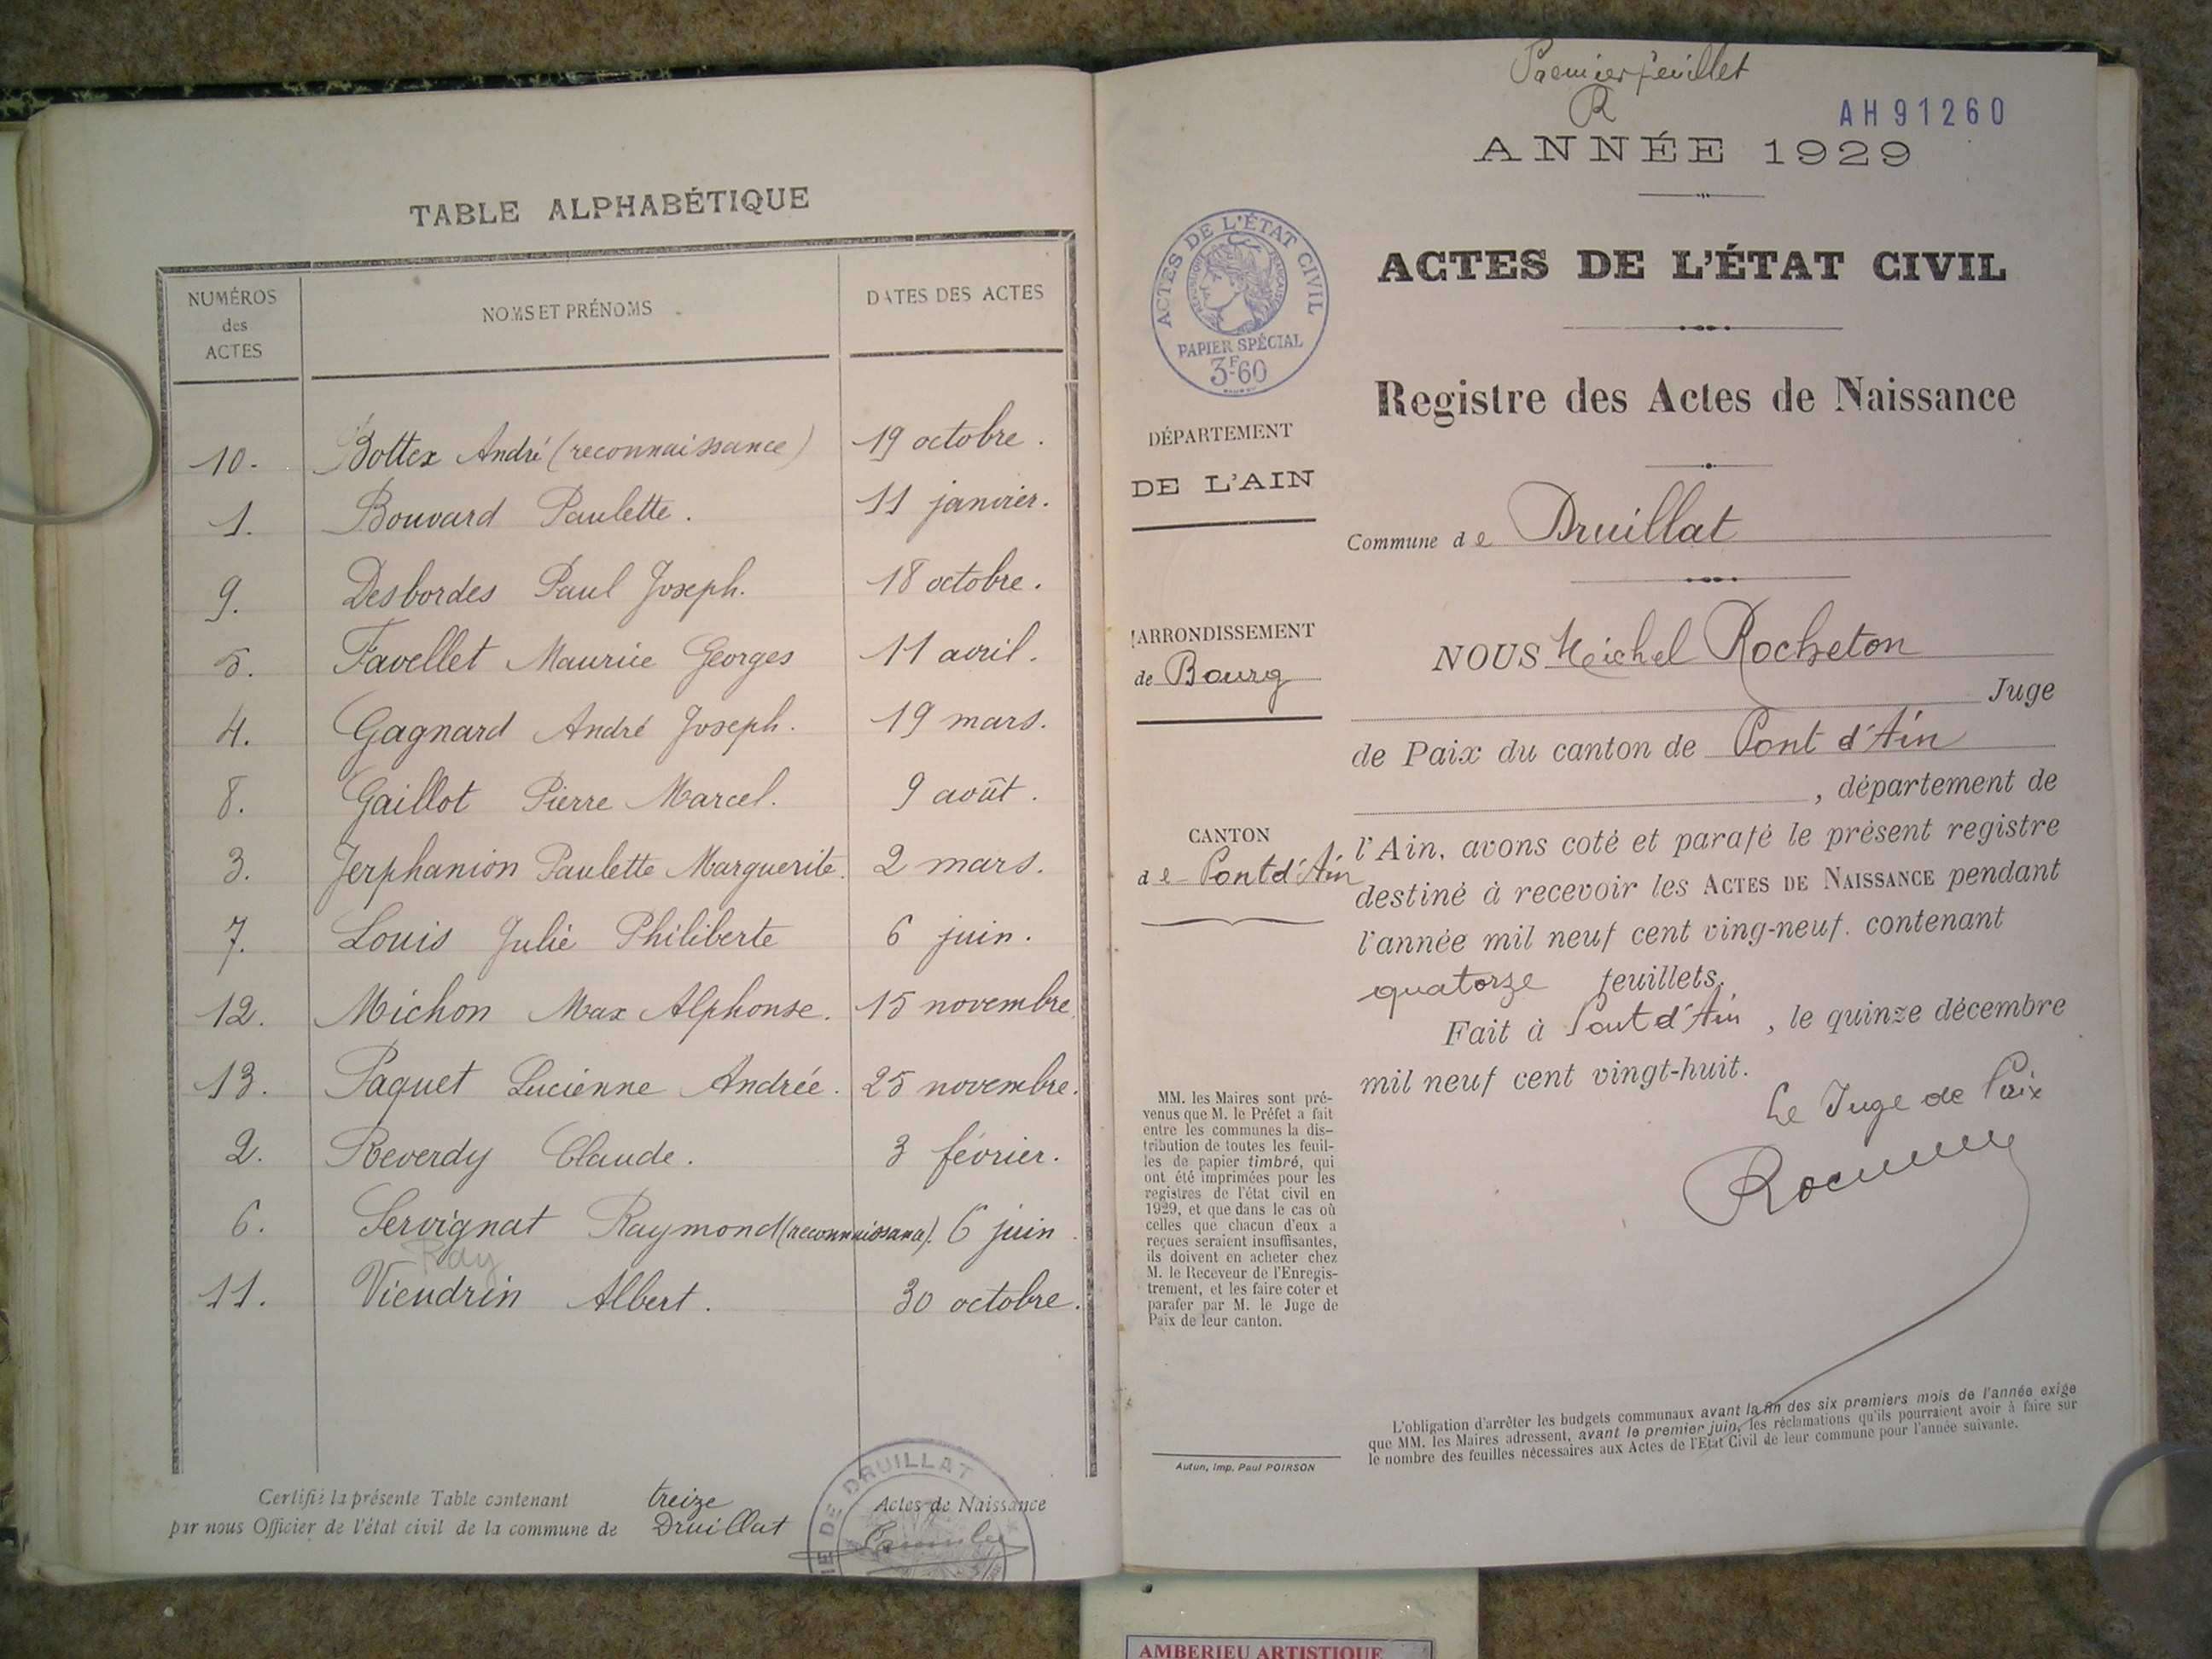 TABLE ALPHABÉTIQUE
NUMÉROS des ACTES NOMS ET PRÉNOMS DATES DES ACTES
10. Bottex André (reconnaissance) 19 octobre.
1. Bouvard Paulette. 11 janvier.
9. Desbordes Paul Joseph. 18 octobre.
5. Favellet Maurice Georges 11 avril.
4. Gagnard André Joseph. 19 mars.
8. Gaillot Pierre Marcel. 9 août.
3. Jerphanion Paulette Marguerite. 2 mars.
7. Louis Julie Philiberte 6 juin.
12. Michon Max Alphonse. 15 novembre
13. Paquet Lucienne Andrée. 25 novembre.
2. Reverdy Claude. 3 février.
6. Servignat Raymond (reconnaissance). 6 juin
Ray
11. Viendrin Albert. 30 octobre.
Certifié la présente Table contenant treize Actes de Naissance
par nous Officier de l'état civil de la commune de Druillat
IE DE DRUILLAT
Premier feuillet
R
AH91260
ANNÉE 1929
ACTES DE L'ÉTAT CIVIL
RÉPUBLIQUE FRANÇAISE
PAPIER SPÉCIAL
3F60
ACTES DE L'ÉTAT CIVIL
Registre des Actes de Naissance
DÉPARTEMENT
DE L'AIN
Commune de Druillat
ARRONDISSEMENT
de Bourg
CANTON
de Pont d'Ain
NOUS Michel Rocheton
Juge
de Paix du canton de Pont d'Ain
, département de
l'Ain, avons coté et parafé le présent registre
destiné à recevoir les ACTES DE NAISSANCE pendant
l'année mil neuf cent ving-neuf. contenant
quatorze feuillets.
Fait à Pont d'Ain, le quinze décembre
mil neuf cent vingt-huit.
Le Juge de Paix
MM. les Maires sont pré-
venus que M. le Préfet a fait
entre les communes la dis-
tribution de toutes les feuil-
les de papier timbré, qui
ont été imprimées pour les
registres de l'état civil en
1929, et que dans le cas où
celles que chacun d'eux a
reçues seraient insuffisantes,
ils doivent en acheter chez
M. le Receveur de l'Enregis-
trement, et les faire coter et
parafer par M. le Juge de
Paix de leur canton.
Autun, Imp. Paul POIRSON
L'obligation d'arrêter les budgets communaux avant la fin des six premiers mois de l'année exige
que MM. les Maires adressent, avant le premier juin, les réclamations qu'ils pourraient avoir à faire sur
le nombre des feuilles nécessaires aux Actes de l'Etat Civil de leur commune pour l'année suivante.
AMBERIEU ARTISTIQUE